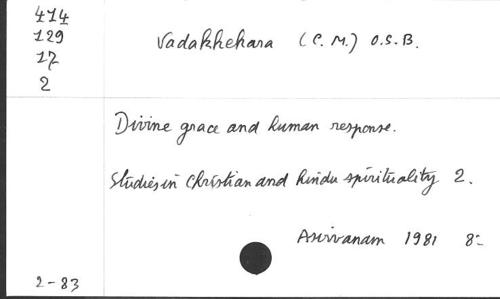 414
129
17
2
Vadakhekara (C. M.) O.S.B.
Divine grace and human response.
Studies in Christian and hindu spirituality 2.
Asirvanam 1981 8º
2-83